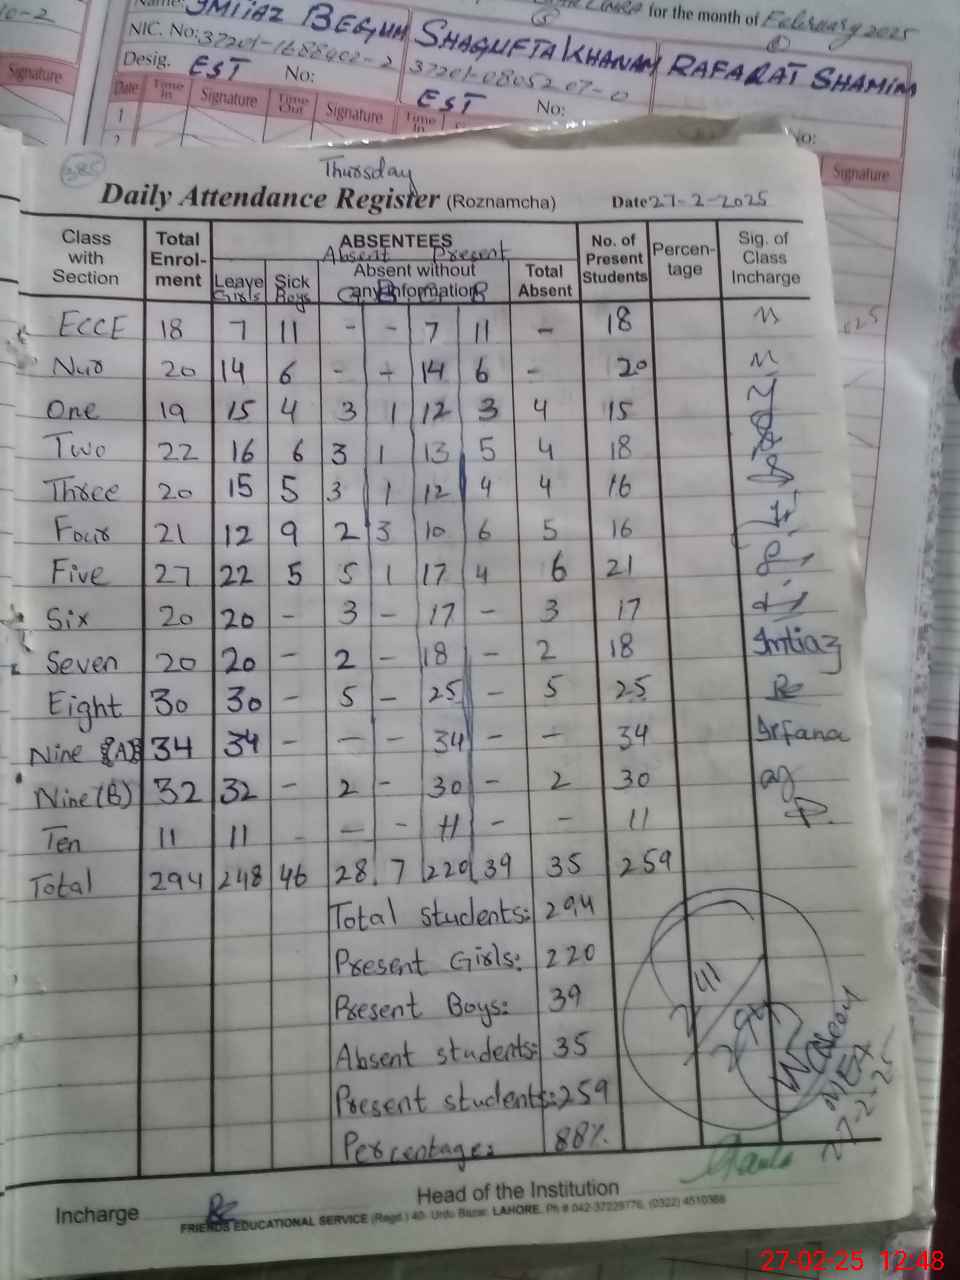 10-2
Name: IMTIAZ BEGUM SHAGUFTA KHANAM RAFARAT SHAMIM
for the month of February 2025
NIC. No: 37201-1688402-2 37201-0805207-0
Desig. EST No: EST No: No:
Signature Date Time In Signature Time Out Signature Time In Signature
1
2
385
Thursday
Daily Attendance Register (Roznamcha) Date 27-2-2025
Class with Section Total Enrol-ment ABSENTEES No. of Present Students Percen-tage Sig. of Class Incharge
Absent Present
Leave Sick Absent without any information Total Absent
Girls Boys G B G B
ECCE 18 7 11 - - 7 11 - 18
Nur 20 14 6 - - 14 6 - 20
One 19 15 4 3 1 12 3 4 15
Two 22 16 6 3 1 13 5 4 18
Three 20 15 5 3 1 12 4 4 16
Four 21 12 9 2 3 10 6 5 16
Five 27 22 5 5 1 17 4 6 21
Six 20 20 - 3 - 17 - 3 17
Seven 20 20 - 2 - 18 - 2 18 Imtiaz
Eight 30 30 - 5 - 25 - 5 25
Nine (A) 34 34 - - - 34 - - 34 Irfana
Nine (B) 32 32 - 2 - 30 - 2 30
Ten 11 11 - - - 11 - - 11
Total 294 248 46 28 7 220 39 35 259
Total students: 294
Present Girls: 220
Present Boys: 39
Absent students: 35
Present students: 259
Percentage: 88%
27-2-25
Incharge Head of the Institution
FRIENDS EDUCATIONAL SERVICE (Regd.) 40- Urdu Bazar, LAHORE. Ph # 042-37229776, (0322) 4510368
27-02-25 12:48